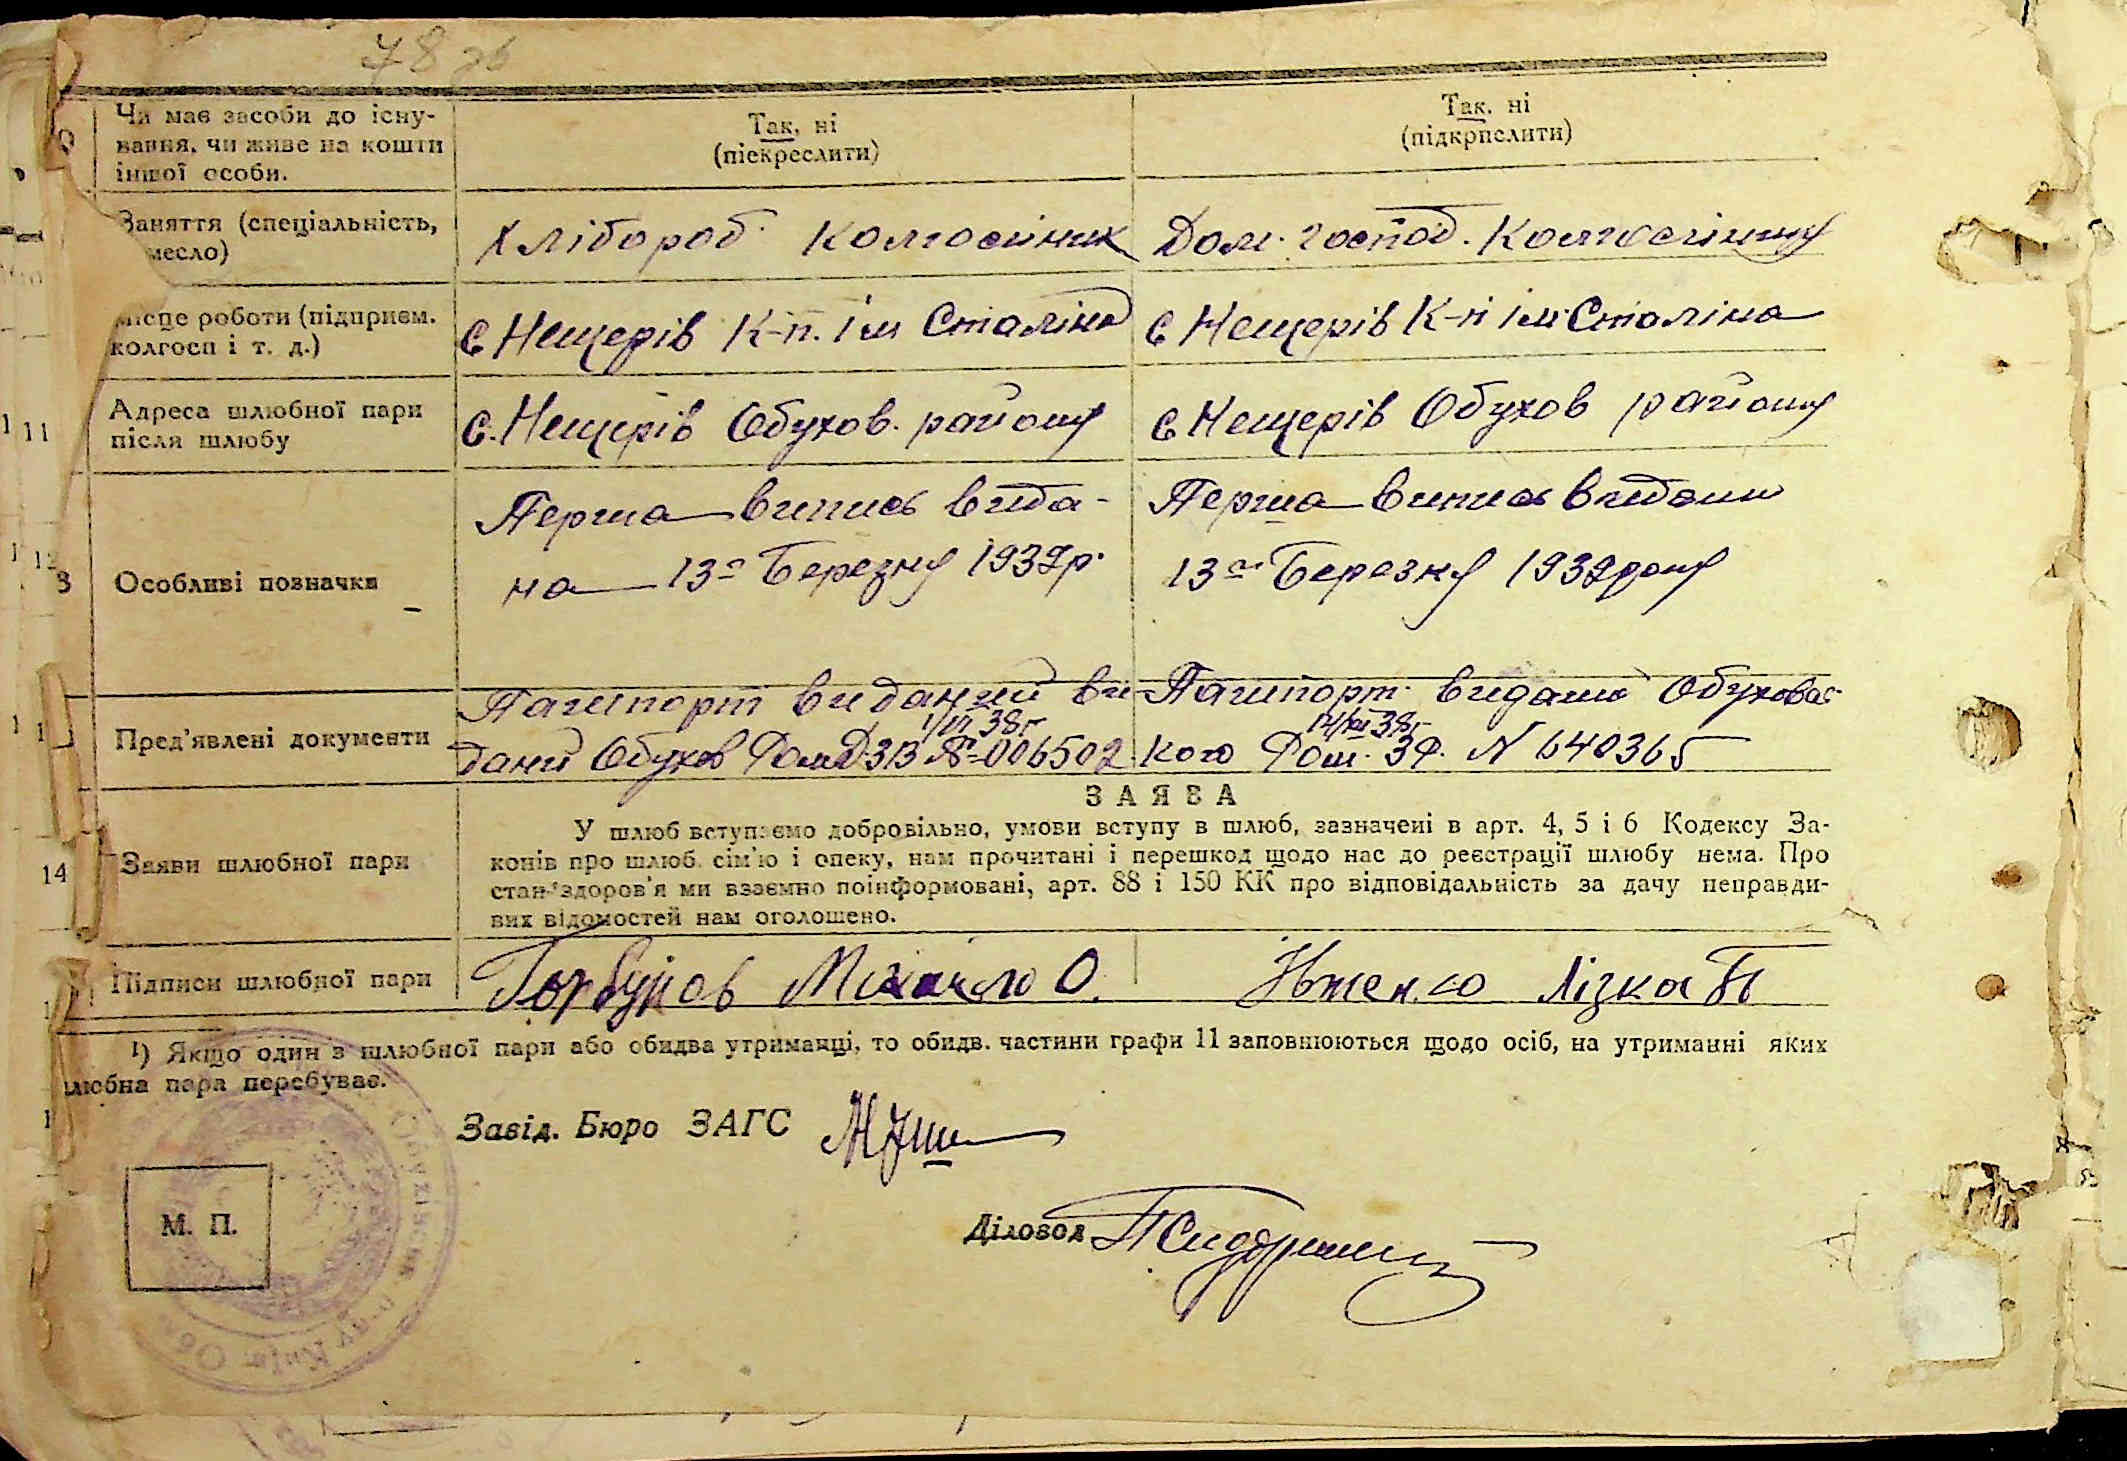 78 зв
Чи має засоби до існу-
вання, чи живе на кошти
іншої особи.
Так, ні
(піекреслити)
Так, ні
(підкрпслити)
Заняття (спеціальність,
месло)
Хлібороб Колгоспник
Дом. господ. Колгоспниц
місце роботи (підприєм.
колгосп і т. д.)
с Нещерів К-п. ім Сталіна
с Нещерів К-п ім Сталіна
11
Адреса шлюбної пари
після шлюбу
с. Нещерів Обухов. району
с Нещерів Обухов району
Особливі позначки
Перша випись вида-
на 13го Березня 1939р.
Перша випись видана
13го Березня 1939року
Пред'явлені документи
Пашпорт виданий ви
1/VI 38г
даний Обухов РомДЗВ № 006502
Пашпорт видани Обуховс
38г
кого Ром. ЗФ. N 640365
14
Заяви шлюбної пари
ЗАЯВА
У шлюб вступаємо добровільно, умови вступу в шлюб, зазначені в арт. 4, 5 і 6 Кодексу За-
конів про шлюб, сім'ю і опеку, нам прочитані і перешкод щодо нас до реєстрації шлюбу нема. Про
стан здоров'я ми взаємно поінформовані, арт. 88 і 150 КК про відповідальність за дачу неправди-
вих відомостей нам оголошено.
Підписи шлюбної пари
Горбунов Михайло О.
Лізка П
¹) Якщо один з шлюбної пари або обидва утриманці, то обидв. частини графи 11 заповнюються щодо осіб, на утриманні яких
шлюбна пара перебуває.
Завід. Бюро ЗАГС
М. П.
Діловод